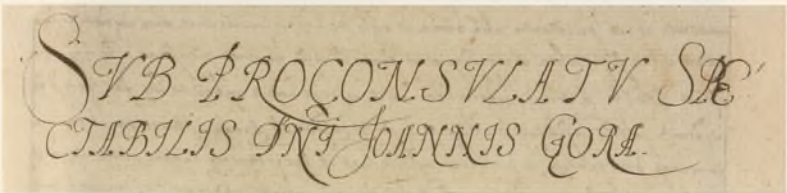 SVB PROCONSVLATV SPE
CTABILIS DNI JOANNIS GORA.